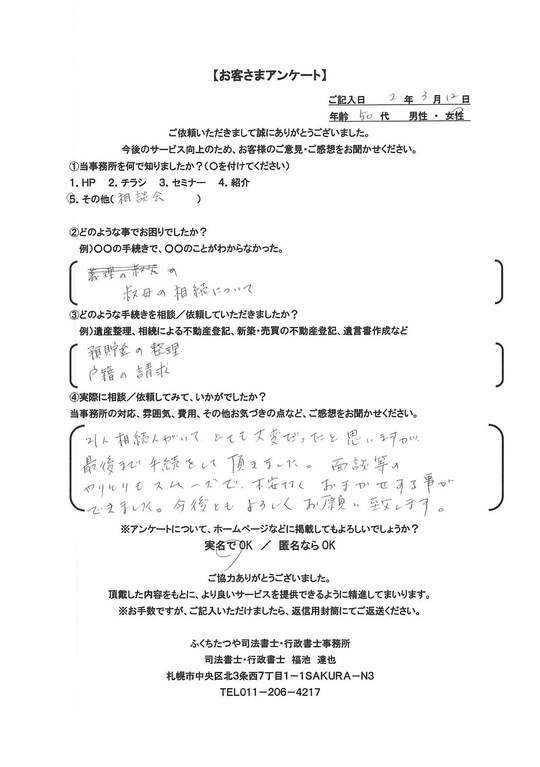 【お客さまアンケート】
ご記入日 2 年 3 月 12 日
年齢 50 代 男性 ・ 女性
ご依頼いただきまして誠にありがとうございました。
今後のサービス向上のため、お客様のご意見・ご感想をお聞かせください。
①当事務所を何で知りましたか?(〇を付けてください)
1. HP 2. チラシ 3. セミナー 4. 紹介
5. その他( 相談会 )
②どのような事でお困りでしたか?
例)〇〇の手続きで、〇〇のことがわからなかった。
叔母の相続について
③どのような手続きを相談/依頼していただきましたか?
例)遺産整理、相続による不動産登記、新築・売買の不動産登記、遺言書作成など
預貯金の整理
戸籍の請求
④実際に相談/依頼してみて、いかがでしたか?
当事務所の対応、雰囲気、費用、その他お気づきの点など、ご感想をお聞かせください。
21人相続人がいて とても大変だったと思いますが、
最後まで手続をして頂きました。 面談等の
やりとりもスムーズで、不安なく おまかせする事が
できました。今後とも よろしく お願い致します。
※アンケートについて、ホームページなどに掲載してもよろしいでしょうか?
実名でOK / 匿名ならOK
ご協力ありがとうございました。
頂戴した内容をもとに、より良いサービスを提供できるように精進してまいります。
※お手数ですが、ご記入いただけましたら、返信用封筒にてご返送ください。
ふくちたつや司法書士・行政書士事務所
司法書士・行政書士 福池 達也
札幌市中央区北3条西7丁目1-1SAKURA-N3
TEL011-206-4217